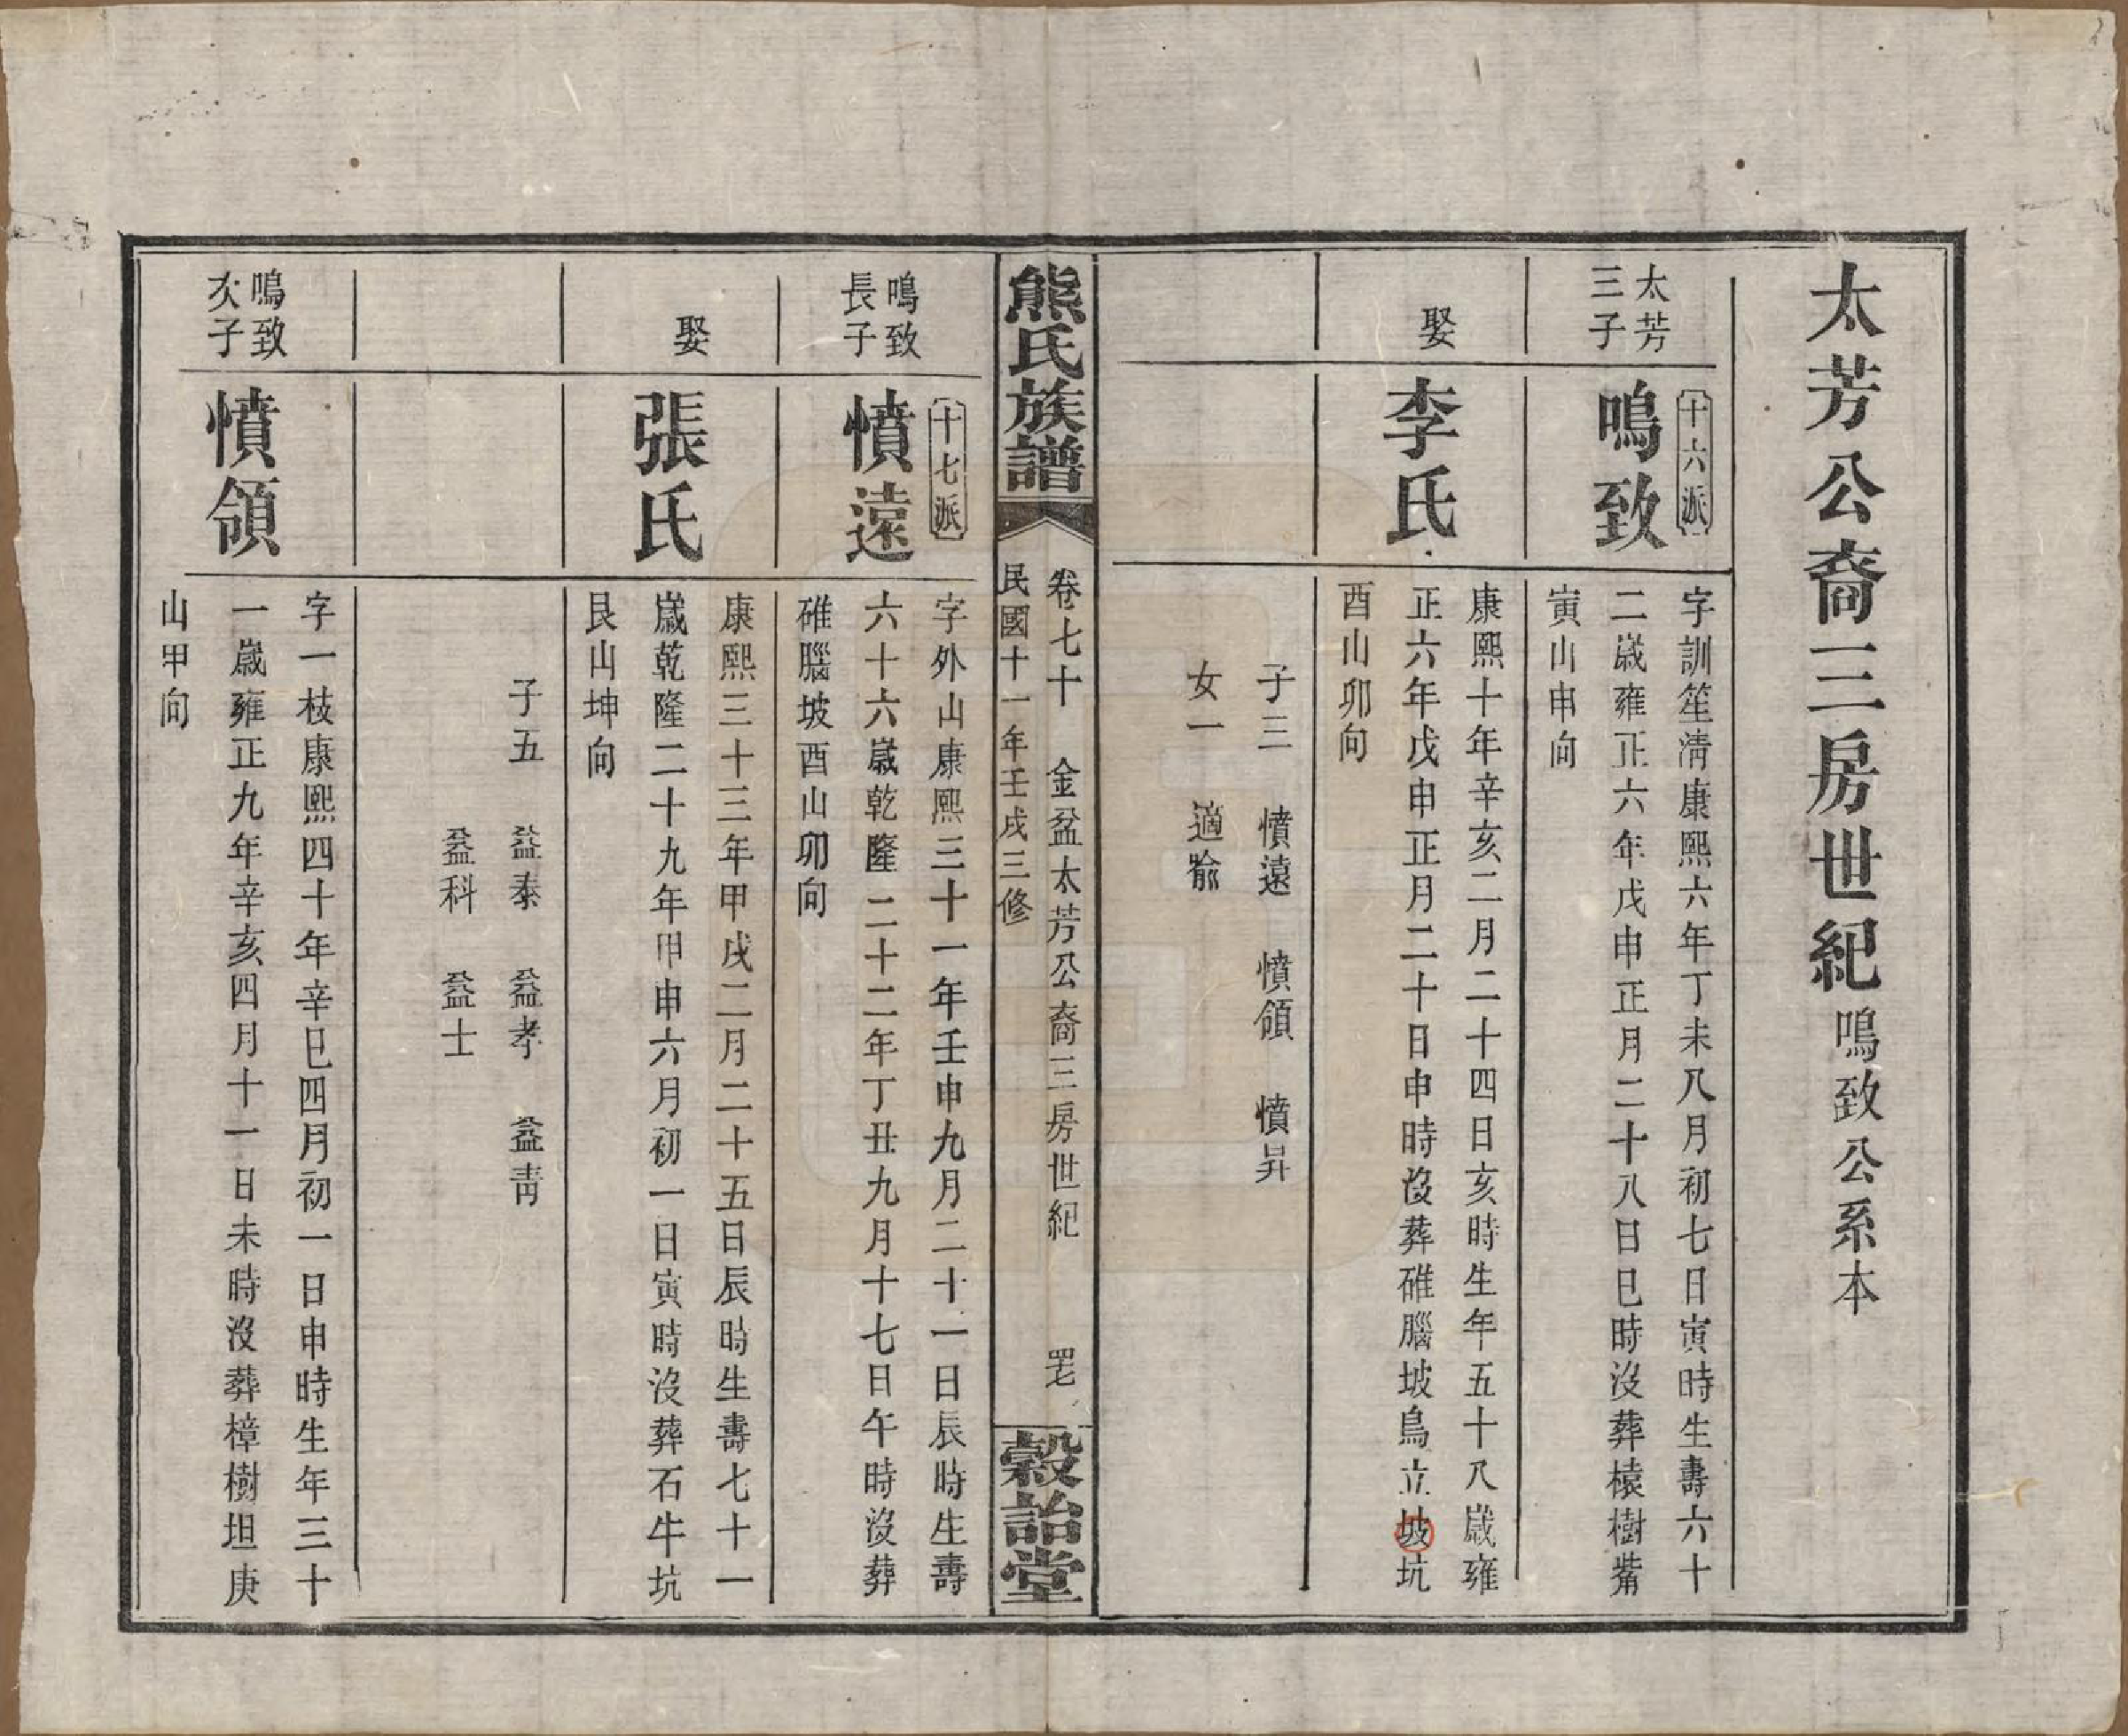 太芳公裔三房世紀 鳴致公系本
太芳
三子
十六派
鳴致
字訓笙清康熙六年丁未八月初七日寅時生壽六十
二歲雍正六年戊申正月二十八日巳時沒葬樣樹觜
寅山申向
娶
李氏
康熙十年辛亥二月二十四日亥時生年五十八歲雍
正六年戊申正月二十日申時沒葬碓腦坡烏立坡坑
酉山卯向
子三 憤遠 憤領 憤昇
女一 適喻
熊氏族譜
卷七十 金盆太芳公裔三房世紀
民國十一年壬戌三修
穀詒堂
鳴致
長子
十七派
憤遠
字外山康熙三十一年壬申九月二十一日辰時生壽
六十六歲乾隆二十二年丁丑九月十七日午時沒葬
碓腦坡酉山卯向
娶
張氏
康熙三十三年甲戌二月二十五日辰時生壽七十一
歲乾隆二十九年甲申六月初一日寅時沒葬石牛坑
艮山坤向
子五 益泰 益孝 益青
益科 益士
鳴致
次子
憤領
字一枝康熙四十年辛巳四月初一日申時生年三十
一歲雍正九年辛亥四月十一日未時沒葬樟樹坦庚
山甲向